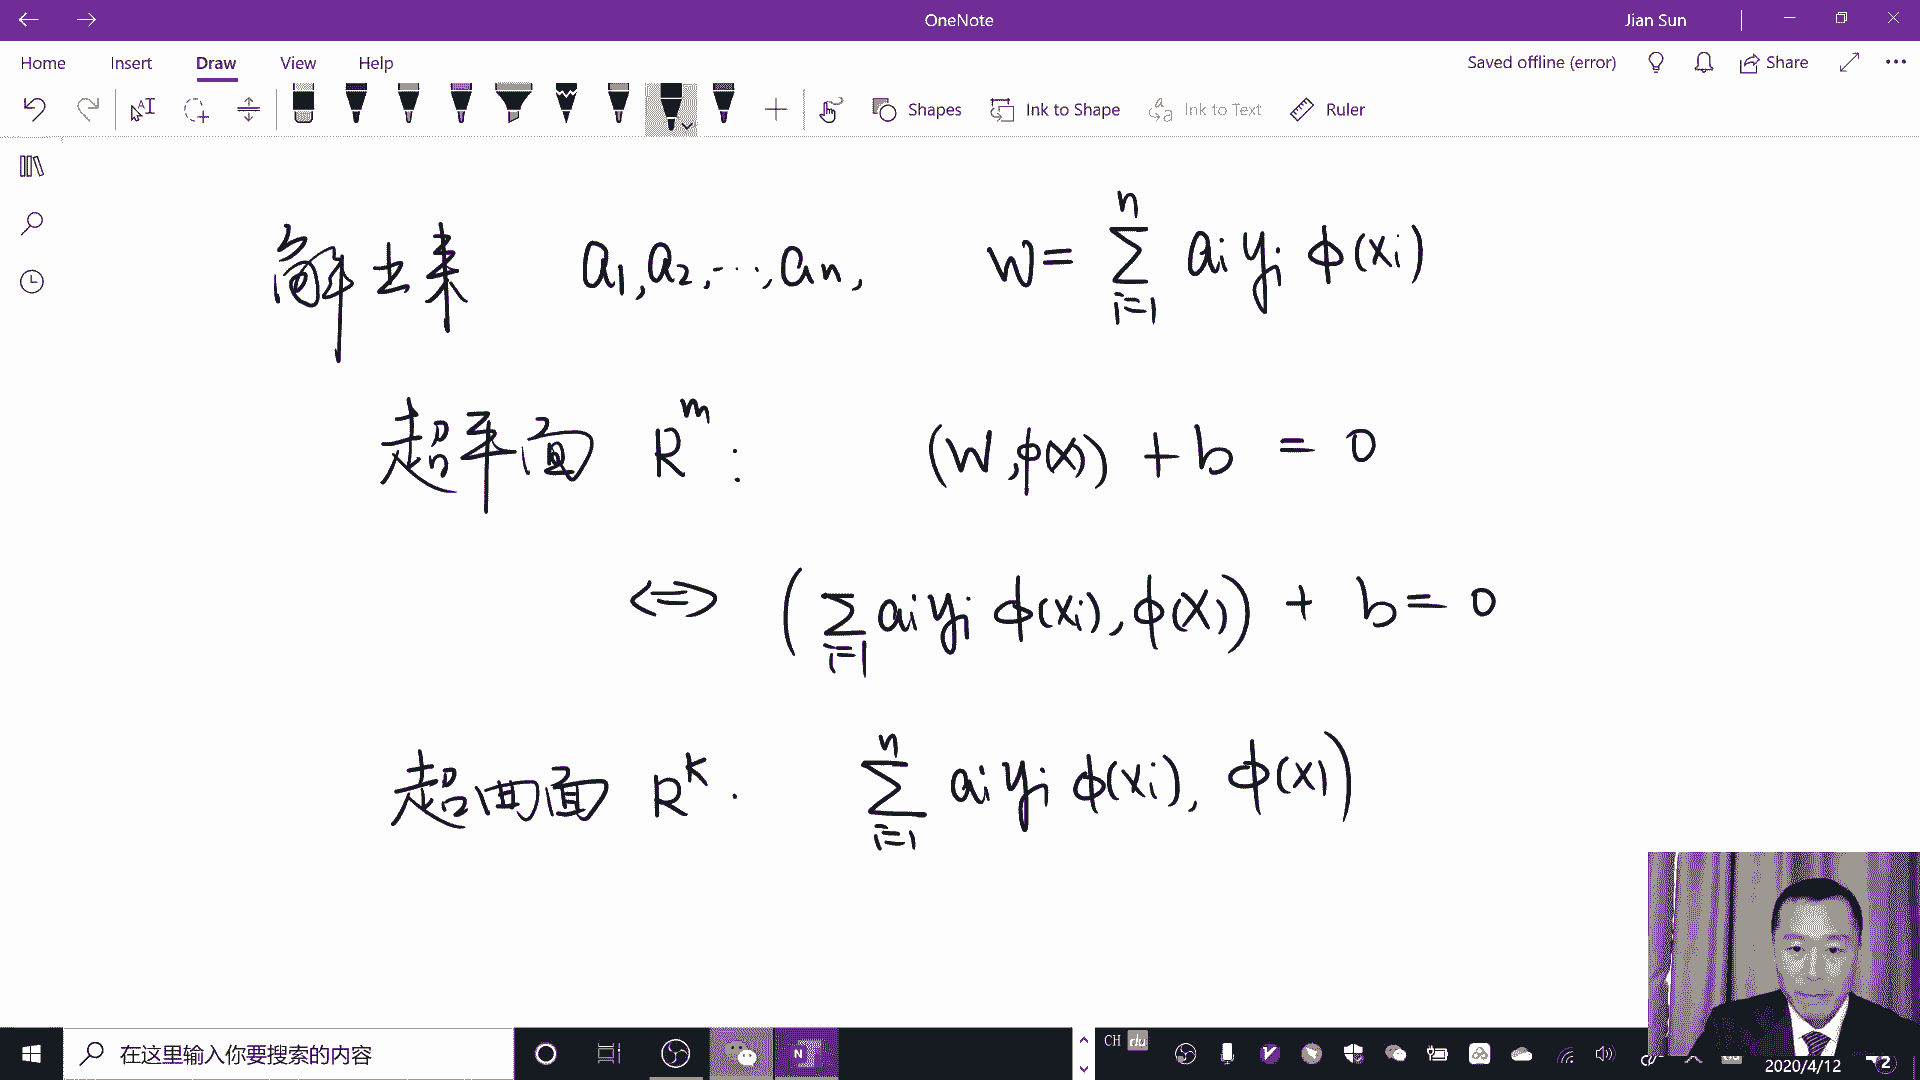 OneNote
Jian Sun
Home Insert Draw View Help
Saved offline (error) Share
Shapes Ink to Shape Ink to Text Ruler
解出来 a₁, a₂, ⋯, aₙ, w = ∑ᵢ₌₁ⁿ aᵢ yᵢ ϕ(xᵢ)
超平面 Rᵐ: (w, ϕ(x)) + b = 0
⇔ (∑ᵢ₌₁ aᵢ yᵢ ϕ(xᵢ), ϕ(x)) + b = 0
超曲面 Rᴷ. ∑ᵢ₌₁ⁿ aᵢ yᵢ ϕ(xᵢ), ϕ(x))
在这里输入你要搜索的内容
CH du
2020/4/12
2